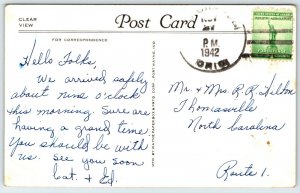 CLEAR VIEW
Post Card
FOR CORRESPONDENCE
P.M.
1942
OHIO
Hello Folks,
We arrived safely
about nine o'clock
this morning. Sure are
having a grand time.
You should be with
us. See you soon
Cat. & Ed.
Mr. & Mrs. R. R. Hilton
Thomasville
North Carolina
Route 1.